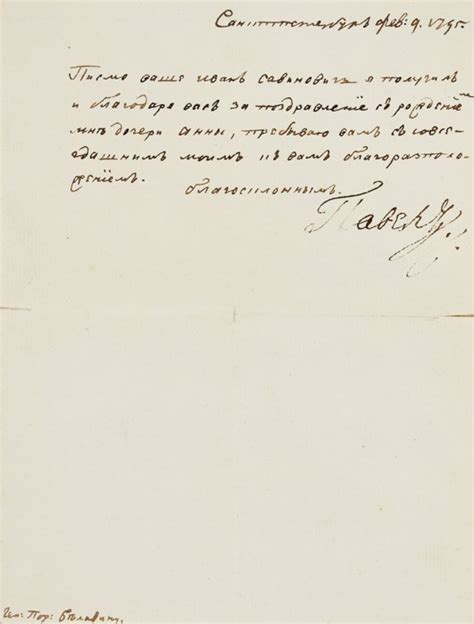 Санктпетербургъ фев: 9. 1795.
Писмо ваше иванъ савиновичъ я получилъ
и благодаря васъ за поздравленіе съ рожденіемъ
мнѣ дочери анны, пребываю вамъ съ совсе-
гдашнимъ моимъ къ вамъ благоразполо-
женіемъ.
благосклоннымъ.
Павелъ
Ген: Пор: